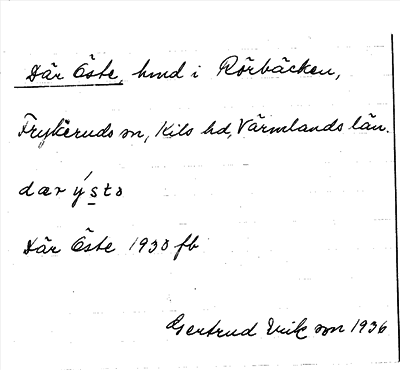 Där Öste, hmd i Rörbäcken,
Frykeruds sn, Kils hd, Värmlands län.
dær ý s t ə
Där Öste 1930 fb
Gertrud 1936